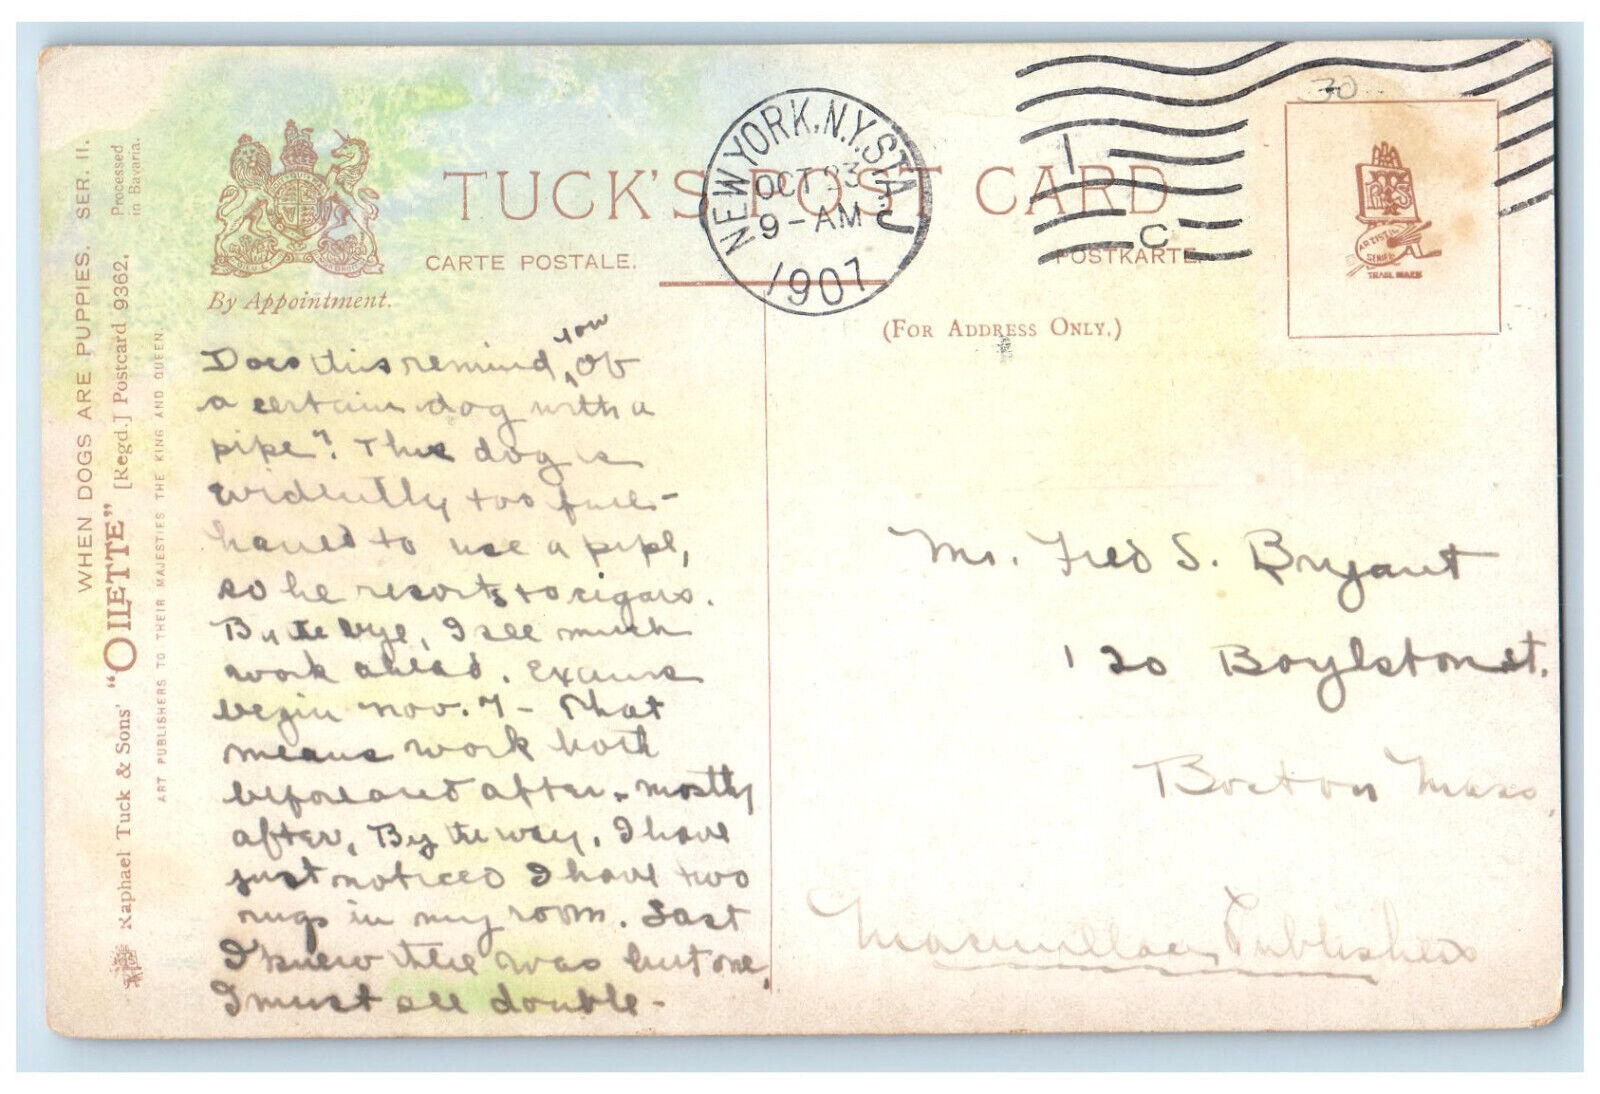 WHEN DOGS ARE PUPPIES. SER. II.
Raphael Tuck & Sons' "OILETTE" [Regd.] Postcard 9362.
Processed
in Bavaria.
ART PUBLISHERS TO THEIR MAJESTIES THE KING AND QUEEN.
By Appointment.
TUCK'S POST CARD
CARTE POSTALE.
POSTKARTE.
(FOR ADDRESS ONLY.)
NEW YORK, N.Y. STA. J
OCT 23
9-AM
1907
1
C
30
ARTISTIC
SERIES
TRADE MARK
Does this remind you of
a certain dog with a
pipe"? This dog is
evidently too full-
to use a pipe,
so he resorts to cigars.
By the bye, I see much
work ahead. Exams
begin Nov. 7 - That
means work both
before and after - mostly
after. By the way, I have
just noticed I have two
rugs in my room. Last
I knew there was but one,
I must see double -
Mr. Fred S. Bryant
120 Boylston st.
Boston Mass.
Macmillan Publishers